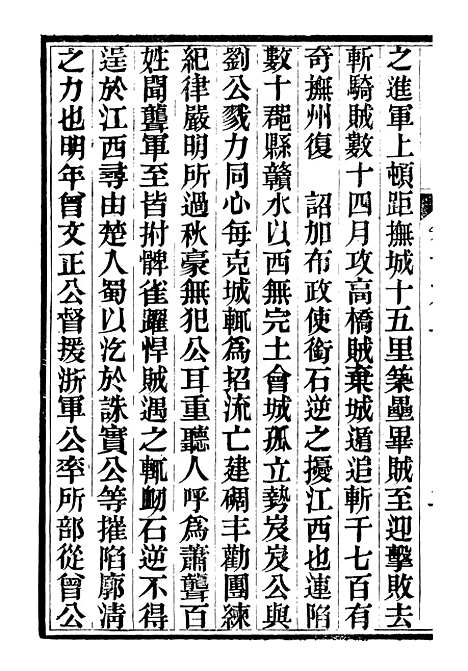 之進軍上頓距撫城十五里築壘畢賊至迎擊敗去
斬騎賊數十四月攻高橋賊棄城遁追斬千七百有
奇撫州復　詔加布政使銜石逆之擾江西也連陷
數十郡縣贛水以西無完土會城孤立勢岌岌公與
劉公戮力同心每克城輒為招流亡建碉丰勸團練
紀律嚴明所過秋豪無犯公耳重聽人呼為蕭聾百
姓聞聾軍至皆拊髀雀躍悍賊遇之輒衂石逆不得
逞於江西尋由楚入蜀以迄於誅實公等摧陷廓清
之力也明年曾文正公督援浙軍公率所部從曾公